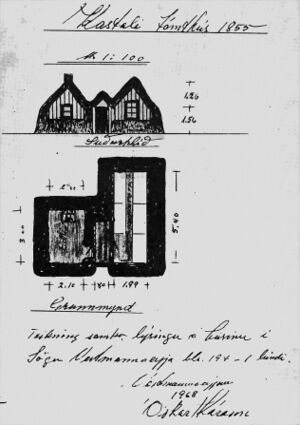 Kastali tómthús 1855
M 1:100
1.26
1.54
Suðurhlið
3.00
5.40
2.10 .80 1.99
Grunnmynd
Teikning samkv. lýsingu á húsinu í
Sögu Vestmannaeyja bls. 194 - 1 bindi.
Vestmannaeyjum
1968
Óskar Kárason